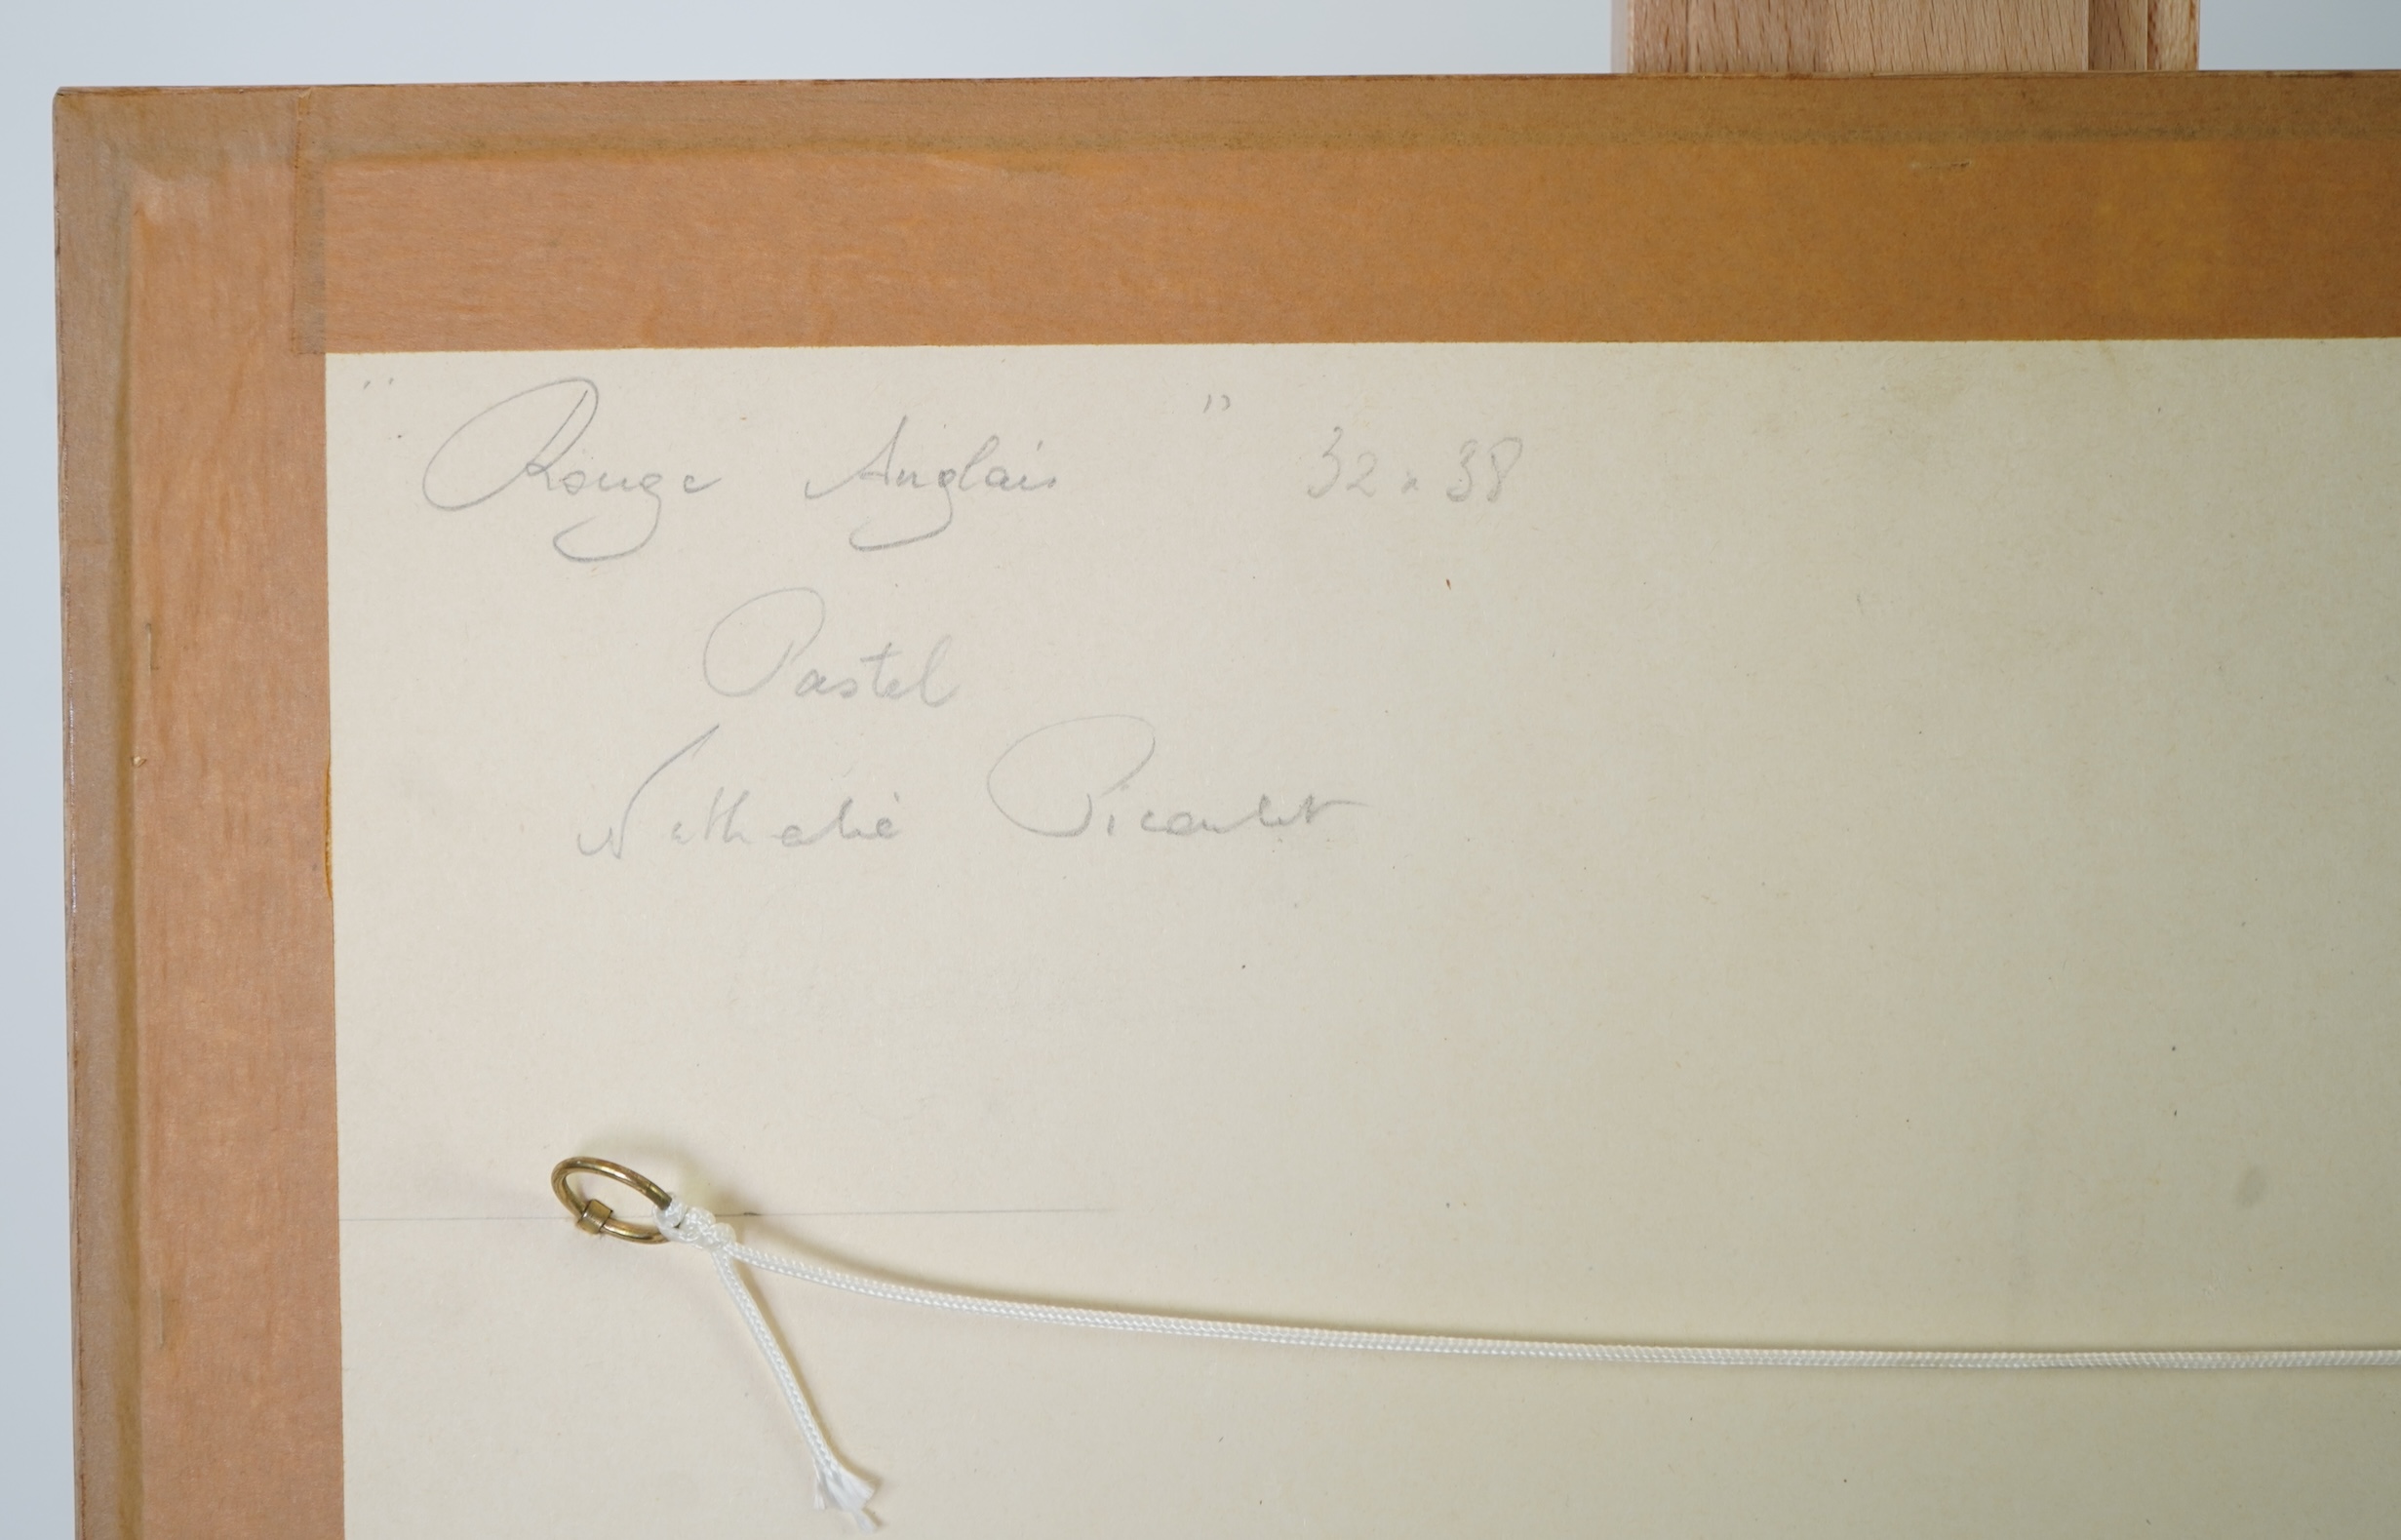 "Rouge Anglais" 32 x 38
Pastel
Nathalie Picoulet